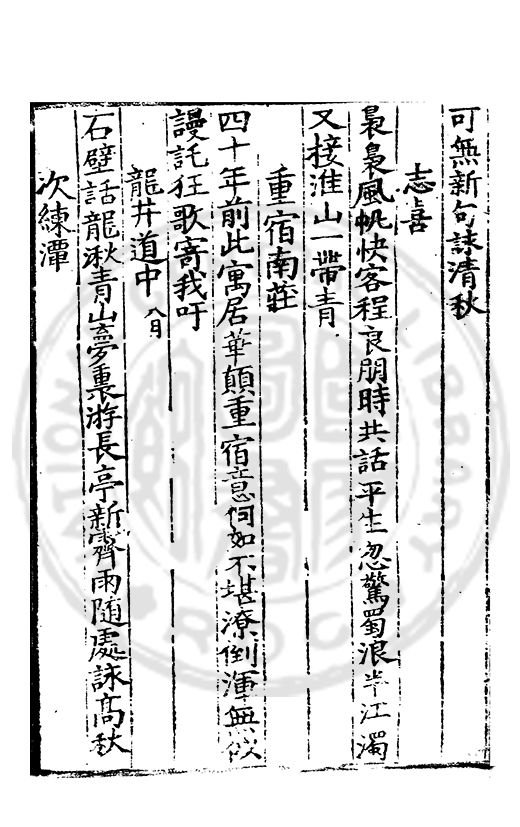 可無新句詠清秋
志喜
裊裊風帆快客程良朋時共話平生忽驚蜀浪半江濁
又接淮山一帶青
重宿南莊
四十年前此寓居華顛重宿意何如不堪潦倒渾無似
謾託狂歌寄我吁
龍井道中 八月
石壁話龍湫青山夢裏游長亭新霽雨随處詠高秋
次練潭